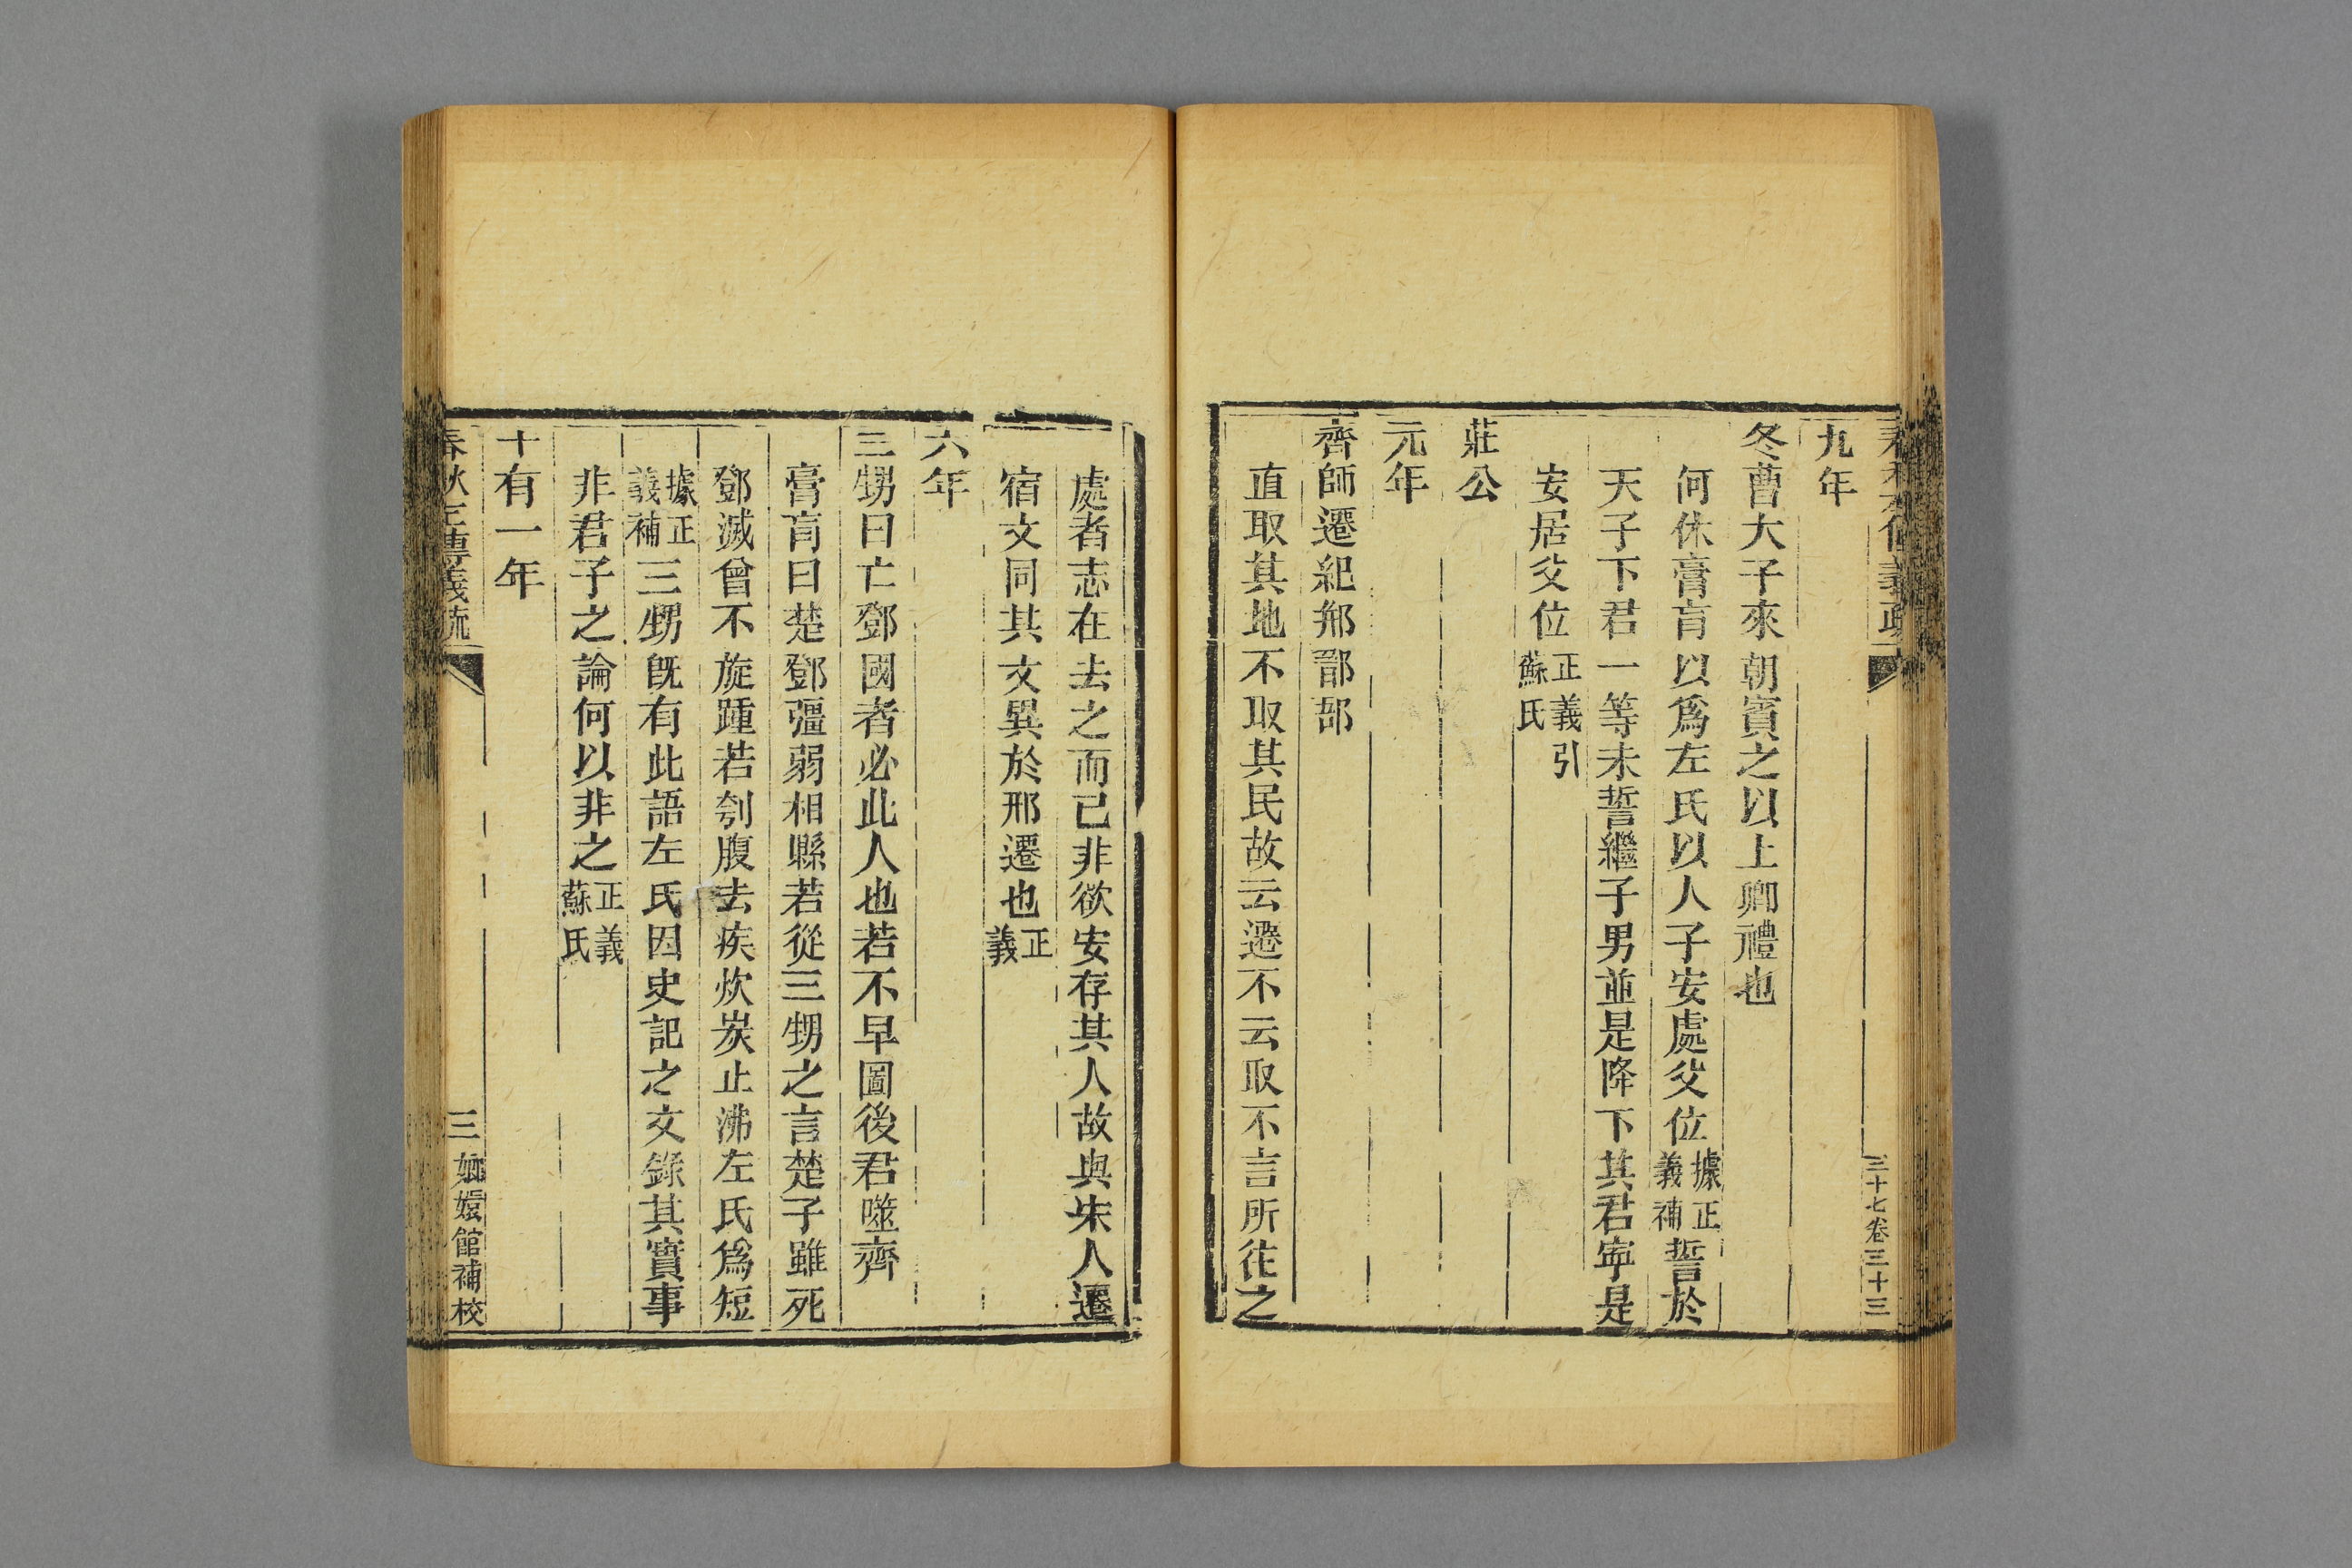 九年
冬曹大子來朝賓之以上卿禮也
何休膏肓以爲左氏以人子安處父位據正義補誓於
天子下君一等未誓繼子男並是降下其君寧是
安居父位正義引蘇氏
莊公
元年
齊師遷紀郱鄑郚
直取其地不取其民故云遷不云取不言所往之
三十七卷三十三
處者志在去之而已非欲安存其人故與宋人遷
宿文同其文異於邢遷也正義
六年
三甥曰亡鄧國者必此人也若不早圖後君噬齊
膏肓曰楚鄧彊弱相縣若從三甥之言楚子雖死
鄧滅曾不旋踵若刳腹去疾炊炭止沸左氏爲短
據正義補三甥旣有此語左氏因史記之文錄其實事
非君子之論何以非之正義蘇氏
十有一年
春秋左傳義疏
三
嫏嬛館補校